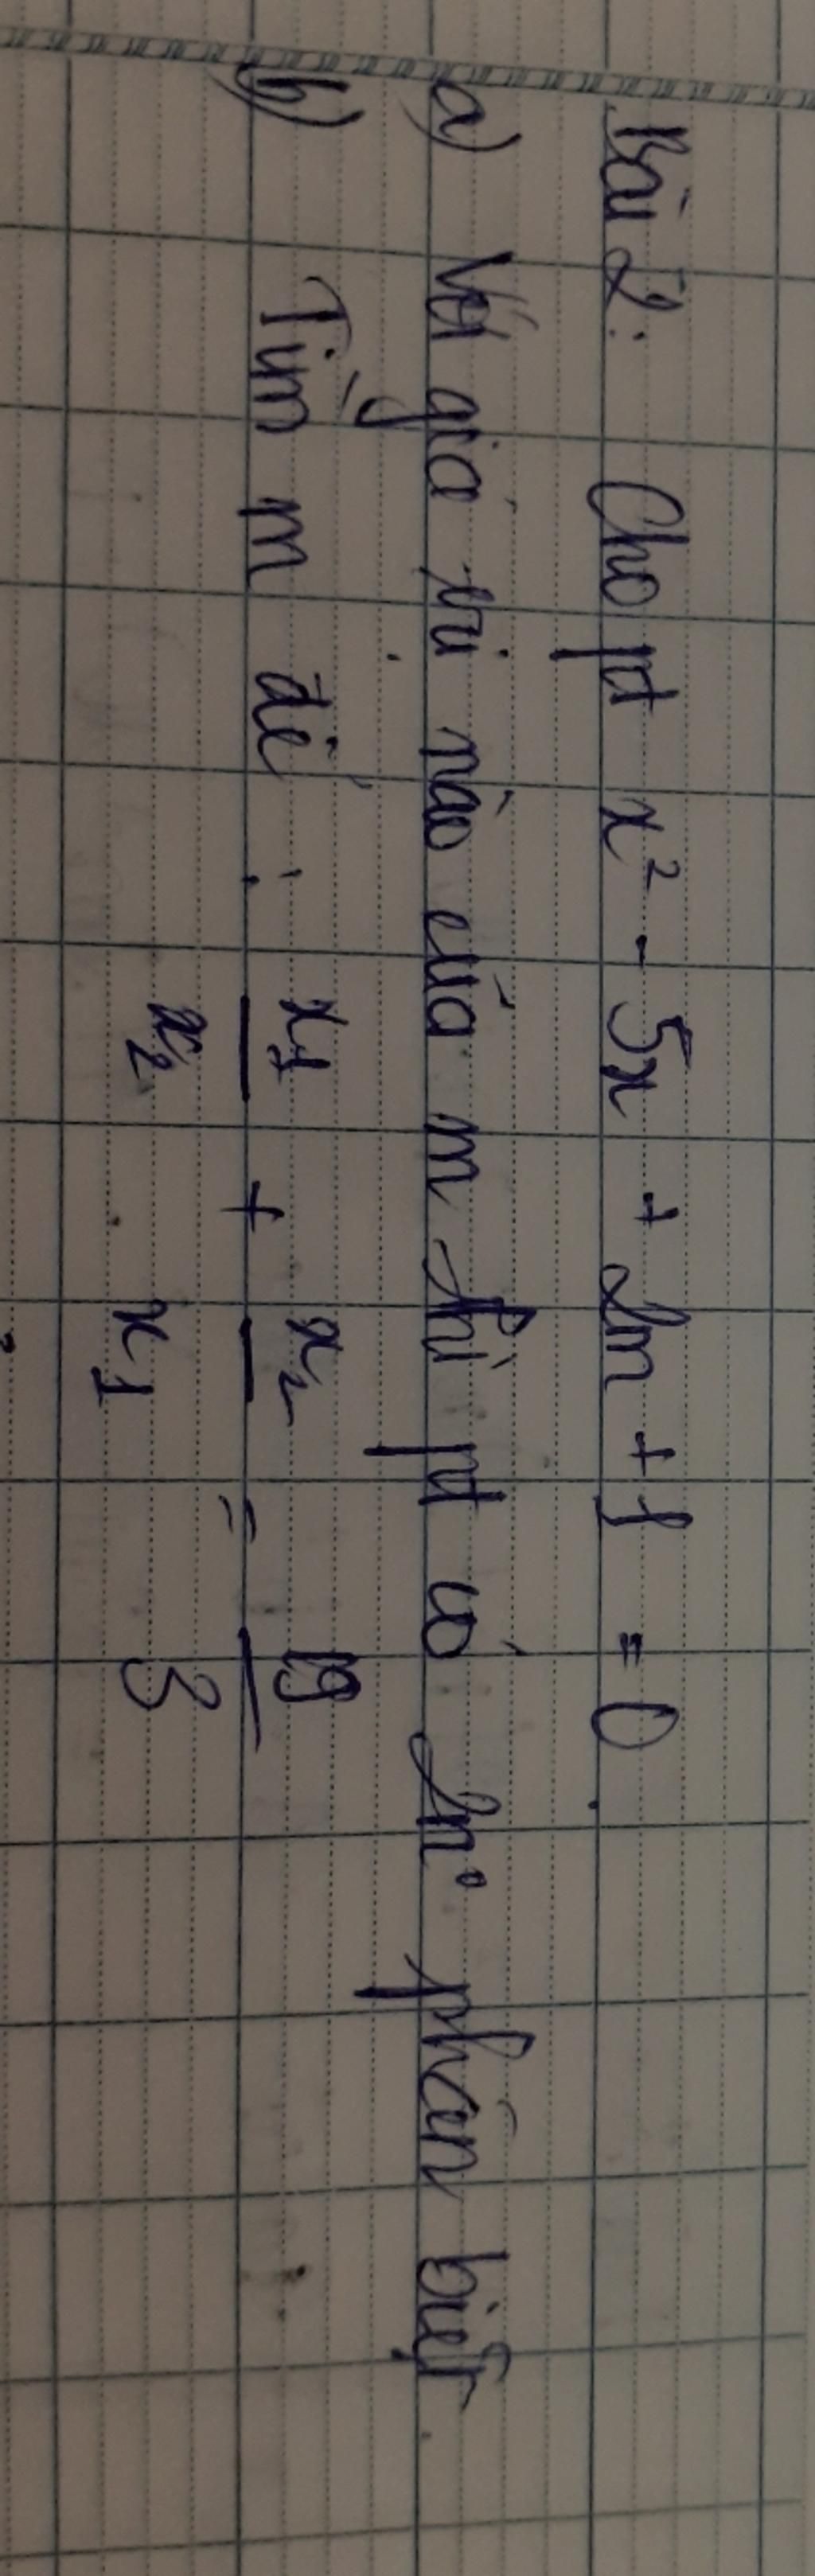 Bài 2: Cho pt x² - 5x + 2m + 1 = 0.
a) Với giá trị nào của m thì pt có 2n° phân biệt.
b) Tìm m để : x₁/x₂ + x₂/x₁ = 19/3